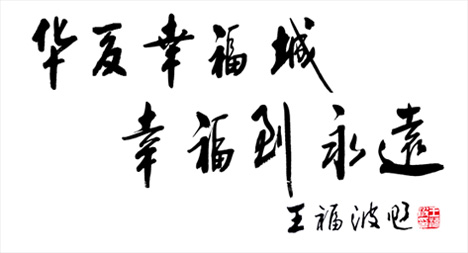 华夏幸福城
幸福到永遠
王福波题